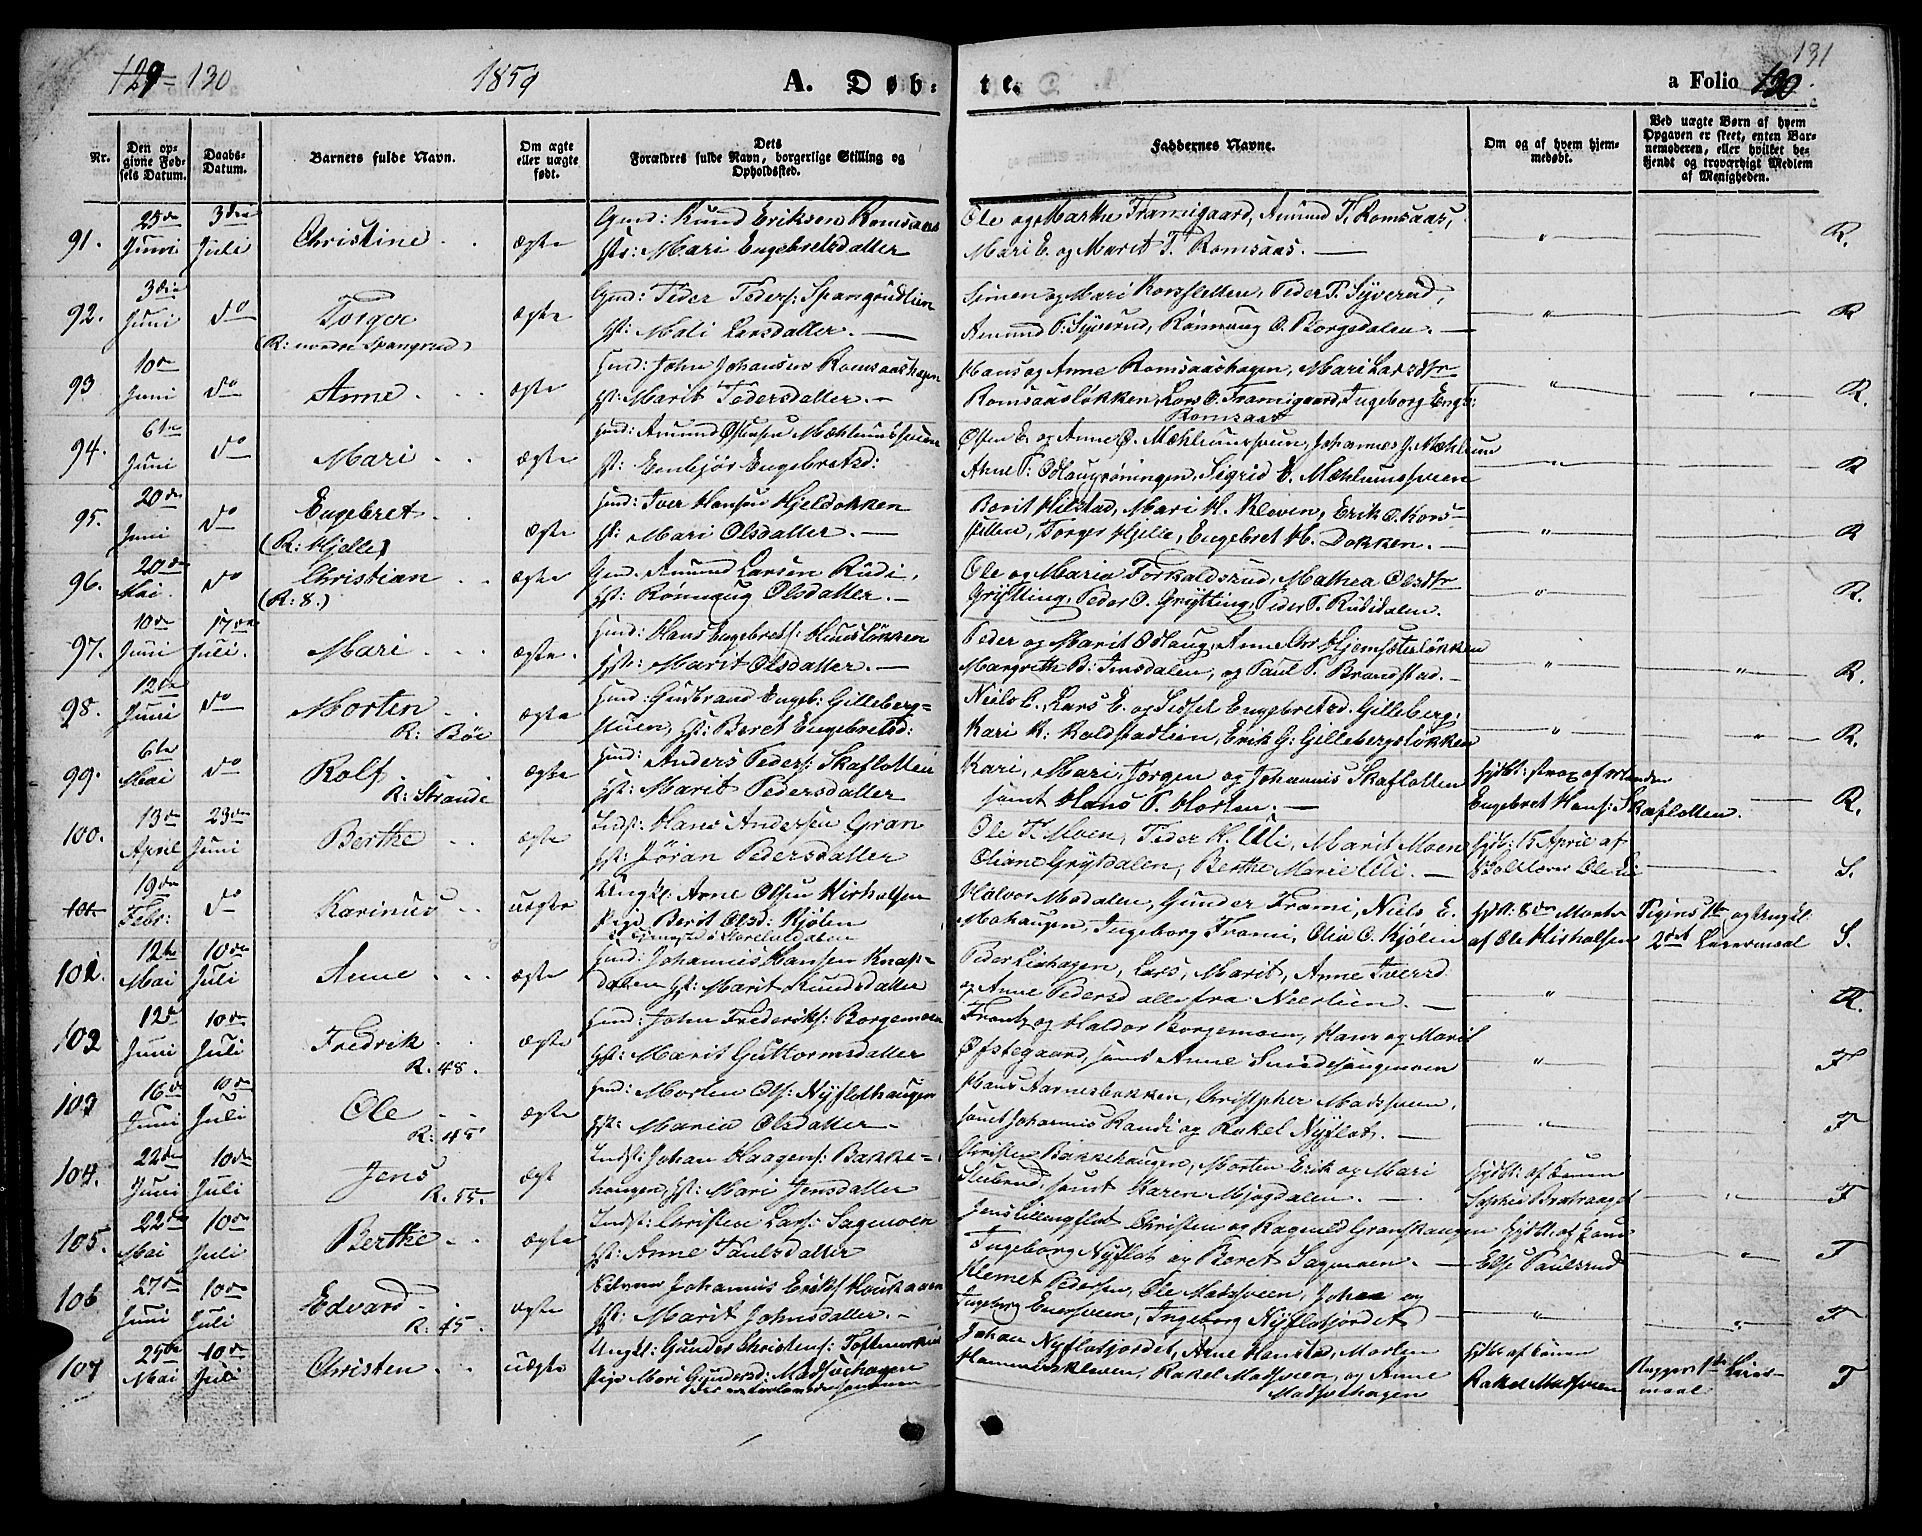 129 130 1859 A. Døb:
te. a Folio 130. 131
Nr.
Den op-
givne Fød-
sels Datum.
Daabs-
Datum.
Barnets fulde Navn.
Om ægte
eller uægte
født.
Dets
Forældres fulde Navn, borgerlige Stilling og
Opholdssted.
Faddernes Navne.
Om og af hvem hjem-
medøbt.
Ved uægte Børn af hvem
Opgaven er skeet, enten Bar-
nemoderen, eller hvilket be-
kjendt og troværdigt Medlem
af Menigheden.
91. 25de Juni 3die Juli Christine ægte
Gmd: Knud Eriksen Romsaas
Hst: Mari Engebretsdatter
Ole og Marthe Framigaard, Amund T. Romsaas,
Mari E. og Marit T. Romsaas. — " R.
92. 3die Juni do Torger ægte
(R: nordre Spangrud)
Gmd: Peder Peders: Spangrudlien
Hst: Mali Larsdatter. —
Simen og Mari Korsletten, Peder P. Syverud,
Amund P. Syverud, Rønnaug O. Borgedalen. — " R
93 10de Juni do Anne ægte
Hmd: John Johansen Romsaashagen
Hst: Marit Pedersdatter. —
Hans og Anne Romsaashagen, Mari Larsdtr
Romsaasløkken, Lars O. Framigaard, Ingeborg Engb:
Romsaas " R.
94. 6te Juni do Mari ægte
Hmd: Amund Østensen Mæhlumssveen
Hst: Embjør Engebretsd:
Østen E. og Anne O. Mæhlumsveen, Johannes J. Mæhlum
Anne P. Odlaugrøningen, Sigrid E. Mæhlumssveen " R
95. 20de Juni do Engebret ægte
(R: Hjelle)
Hmd: Iver Hansen Hjeldokken
Hst: Mari Olsdatter. —
Berit Hilstad, Mari H. Kleven, Erik O. Kors-
stetten, Torger Hjelle, Engebret H. Dokken. — " R
96. 20de Mai. do Christian ægte
(R: 8.)
Gmd. Amund Larsen Rudi,
Hst: Rønnaug Olsdatter. —
Ole og Maria Forkaldsrud, Mathea Olsdtr
Grytting, Peder O. Grytting, Peder P. Rudidalen. " R.
97. 10de Juni 17de Juli. Mari ægte.
Hmd: Hans Engebrets: Huusløkken
Hst: Marit Olsdatter. —
Peder og Marit Odlaug, Anne Chr Hjemsæterløkken
Margrethe B. Imsdalen, og Paul P. Brandstad. — " " R.
98. 12te Juni do Morten ægte
R: Böe
Hmd: Gudbrand Engeb: Gilleberg-
stuen, Hst: Beret Engebretsd:
Niels E., Lars E. og Sidsel Engebretsd. Gilleberg,
Kari K. Koldstadlien, Erik G. Gillebergsløkken " " R.
99. 6te Mai do Rolf ægte
R: Strande
Hmd: Anders Peders: Skaflotten
Hst: Marit Pedersdatter
Kari, Mari, Jørgen og Johannes Skaflotten
samt Hans P. Horten. —
Hjdbt: strax af Manden
Engebret Hans: Skaflotten. R.
100. 13de April 23de Juni Berthe ægte
Indst: Hans Andersen Gran
Hst: Jøran Pedersdatter
Ole T. Moen, Peder H. Uli, Marit Moen
Oliane Grytdalen, Berthe Marie Uli. —
Hjdbt: 15 April af
Ole Lie S.
101. 19de Febr: do Karinus uægte
Ungkl: Arne Olsen Kirholsen
Pige Berit Olsd: Kjølen
Halvor Modalen, Gunder Frami, Niels E.
Mohaugen, Ingeborg Frami, Olia O. Kjølien
Hjdbt: 8de Marts
af Ole Kirholsen
Pigens 1te og Ungkl
2det Leiermaal S.
101. 12te Mai 10de Juli Anne ægte
Hmd: Johannes Hansen Knap-
dalen Hst: Marit Knudsdatter
Peder Liehagen, Lars, Marit, Anne Iversd
og Anne Pedersd alle fra Neerlien. — " R.
102 12te Juni 10de Juli Fredrik ægte
R. 48.
Hmd: John Frederiks: Borgemoen
Hst: Marit Guttormsdatter
Frantz og Haldor Borgemoen, Hans og Marit
Øfstegaard, samt Anne Sundesengmoen " F
103 16de Juni 10de Juli Ole ægte
R: 45
Hmd: Morten Ols: Nyflothaugen
Hst: Maria Olsdatter —
Hans Aarnesbakken, Christopher Madssveen,
samt Johannes Randi og Rakel Nyflot. — " F
104. 22de Juni 10de Juli Jens ægt
R. 55.
Indst: Johan Haagens: Bakke-
haugen, Hst: Mari Jensdatter
Christen Bakkehaugen, Morten Erik og Mari
Stubrud, samt Karen Mjøgdalen. —
Hjdbt: af Konen
Sophie Bratvangel " F
105. 22de Mai 10de Juli Berthe ægte
Indst: Christen Lars: Sagmoen
Hst: Anne Paulsdatter
Jens Lillengflot Christen og Ragnild Granshaugen
Ingeborg Nyflot og Beret Sagmoen. —
Hjdbt. af Kone
Else Paulsrud " F
106 27de Juni 10de Juli Edvard ægte
R: 45.
Johannes Eriks:
Hst: Marit Johnsdatter. —
Klemet Pedersen, Ole Madssveen, Johan og
Ingeborg Enersveen, Ingeborg Nyflotjordet " " F
107 25de Mai 10de Juli Christen uægte
Ungkl: Gunder Christens: Toftemarken
Pige Mari Gundersd: Madssvehagen
der ere forlovede sammen
Johan Nyflotjordet, Arne Hanstad, Morten
Hammerskleven, Rakel Madssveen, og Anne
Madssvehagen
Hjdbt af Konen
Rakel Madssveen
Begges 1te Leier-
maal F